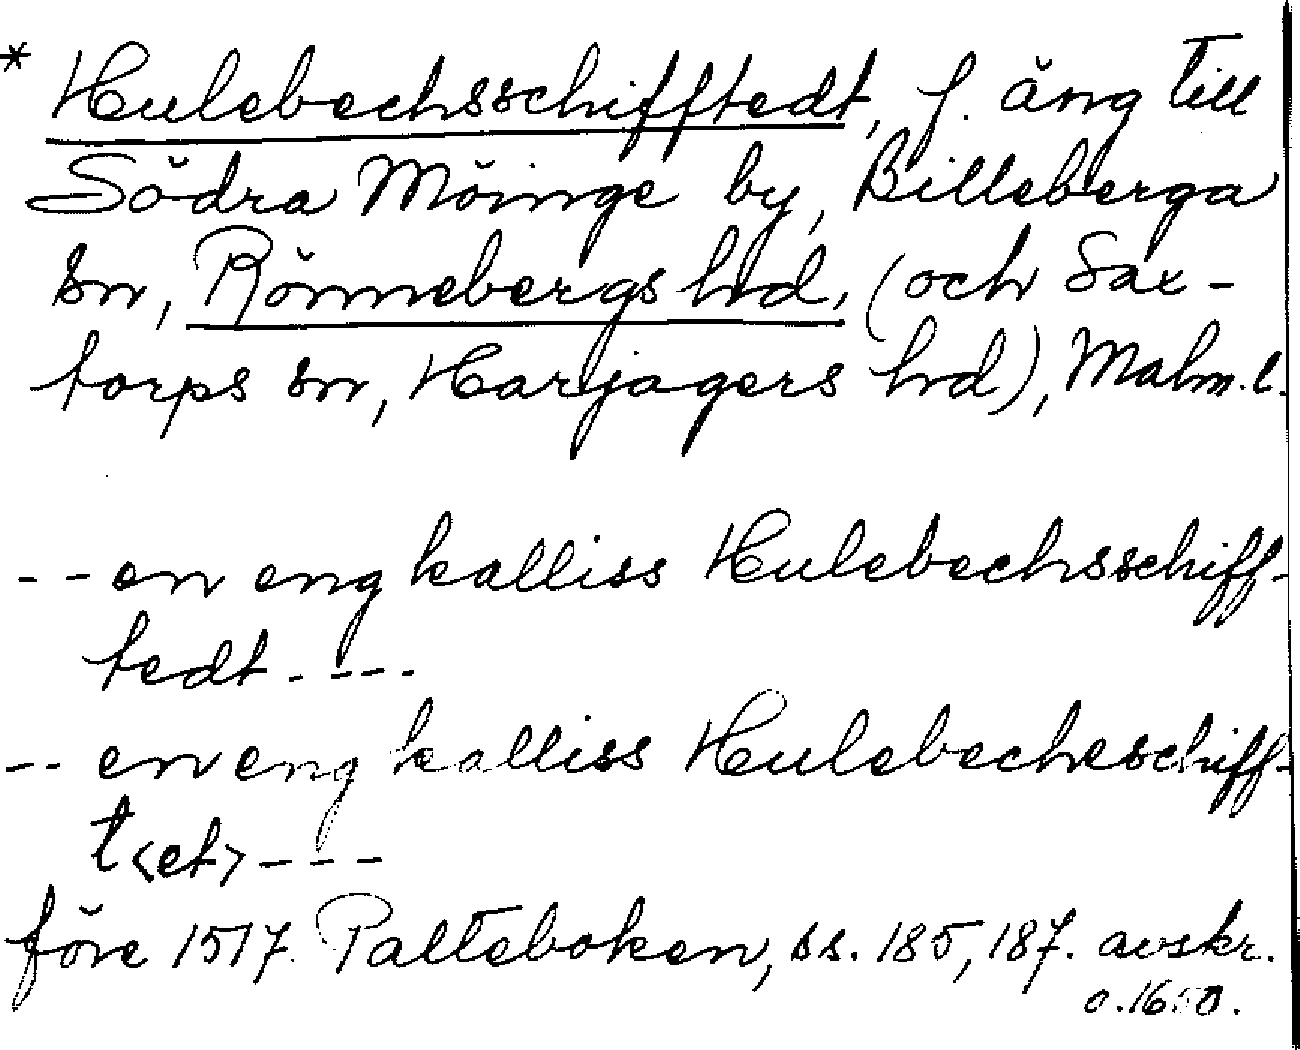 * Hulebechsschifftedt, f. äng till
Södra Möinge by, Billeberga
sn, Rönnebergs hd, (och Sax-
torps sn, Harjagers hd), Malm. l.
-- en eng kalliss Hulebechsschiff-
tedt ----
-- en eng kalliss Hulebecheschiff-
t<et> ---
före 1517. Palteboken, ss. 185, 187. avskr.
o. 1650.